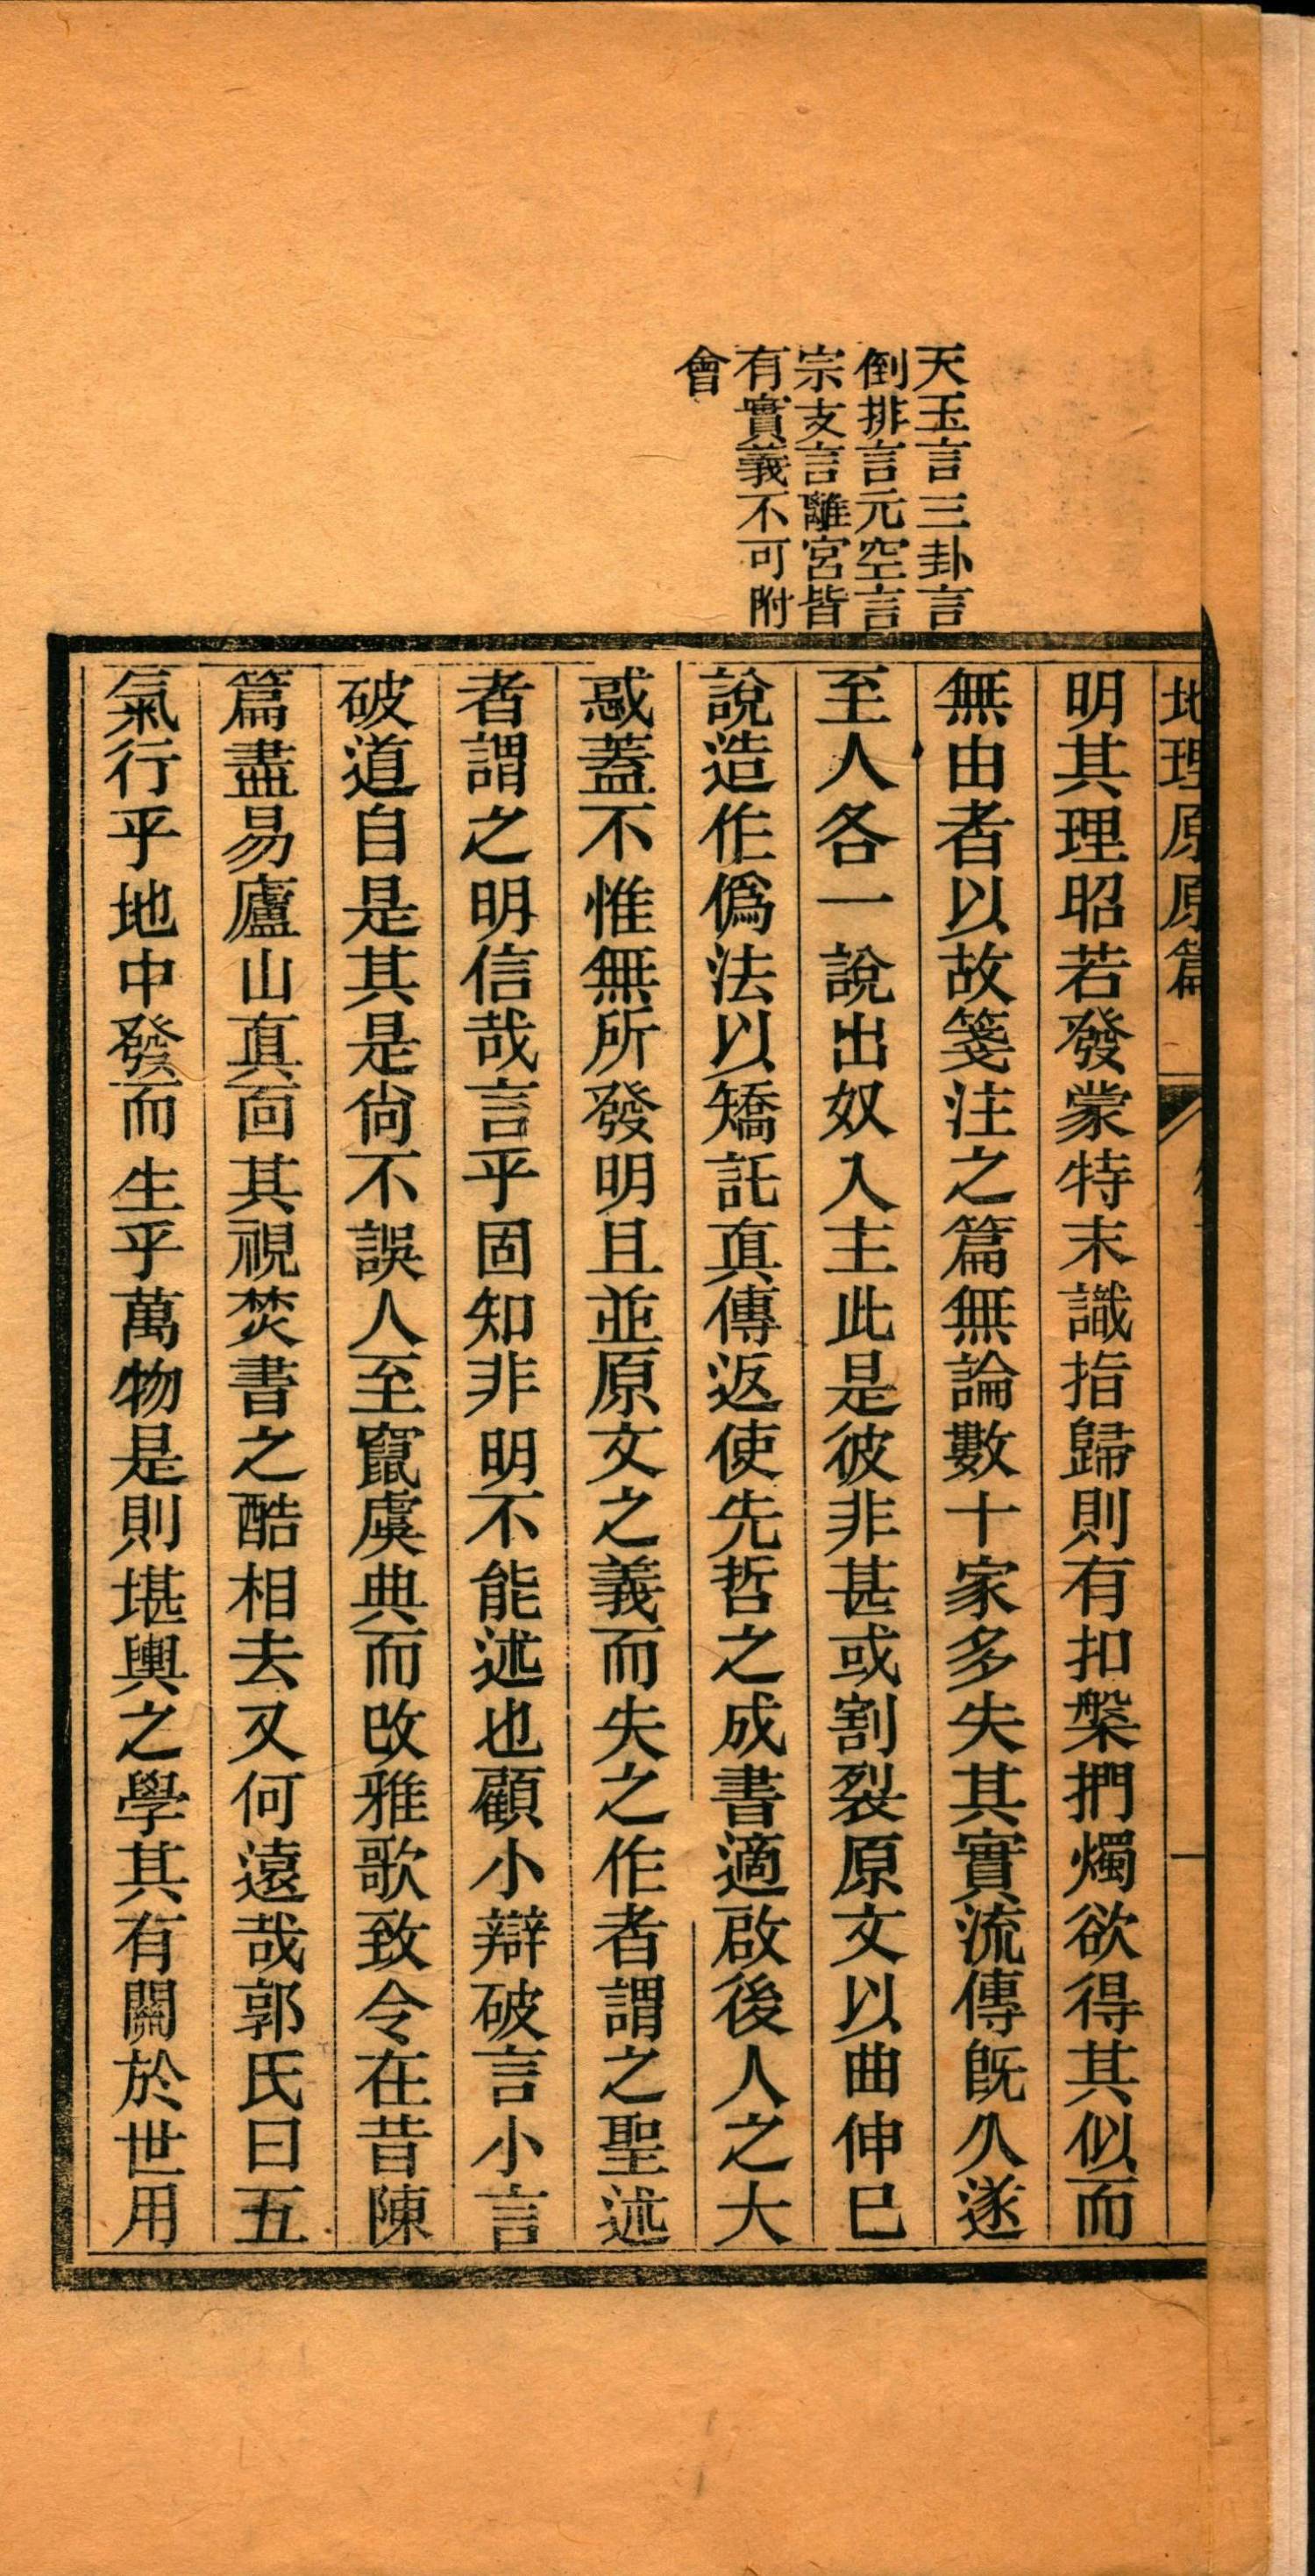 地理原原篇
一
天玉言三卦言
倒排言元空言
宗支言離宮皆
有實義不可附
會
明其理昭若發蒙特未識指歸則有扣槃捫燭欲得其似而
無由者以故箋注之篇無論數十家多失其實流傳旣久遂
至人各一說出奴入主此是彼非甚或割裂原文以曲伸已
說造作僞法以矯託真傳返使先哲之成書適啟後人之大
惑蓋不惟無所發明且並原文之義而失之作者謂之聖述
者謂之明信哉言乎固知非明不能述也顧小辯破言小言
破道自是其是尙不誤人至竄虞典而改雅歌致令在昔陳
篇盡易廬山真面其視焚書之酷相去又何遠哉郭氏曰五
氣行乎地中發而生乎萬物是則堪輿之學其有關於世用